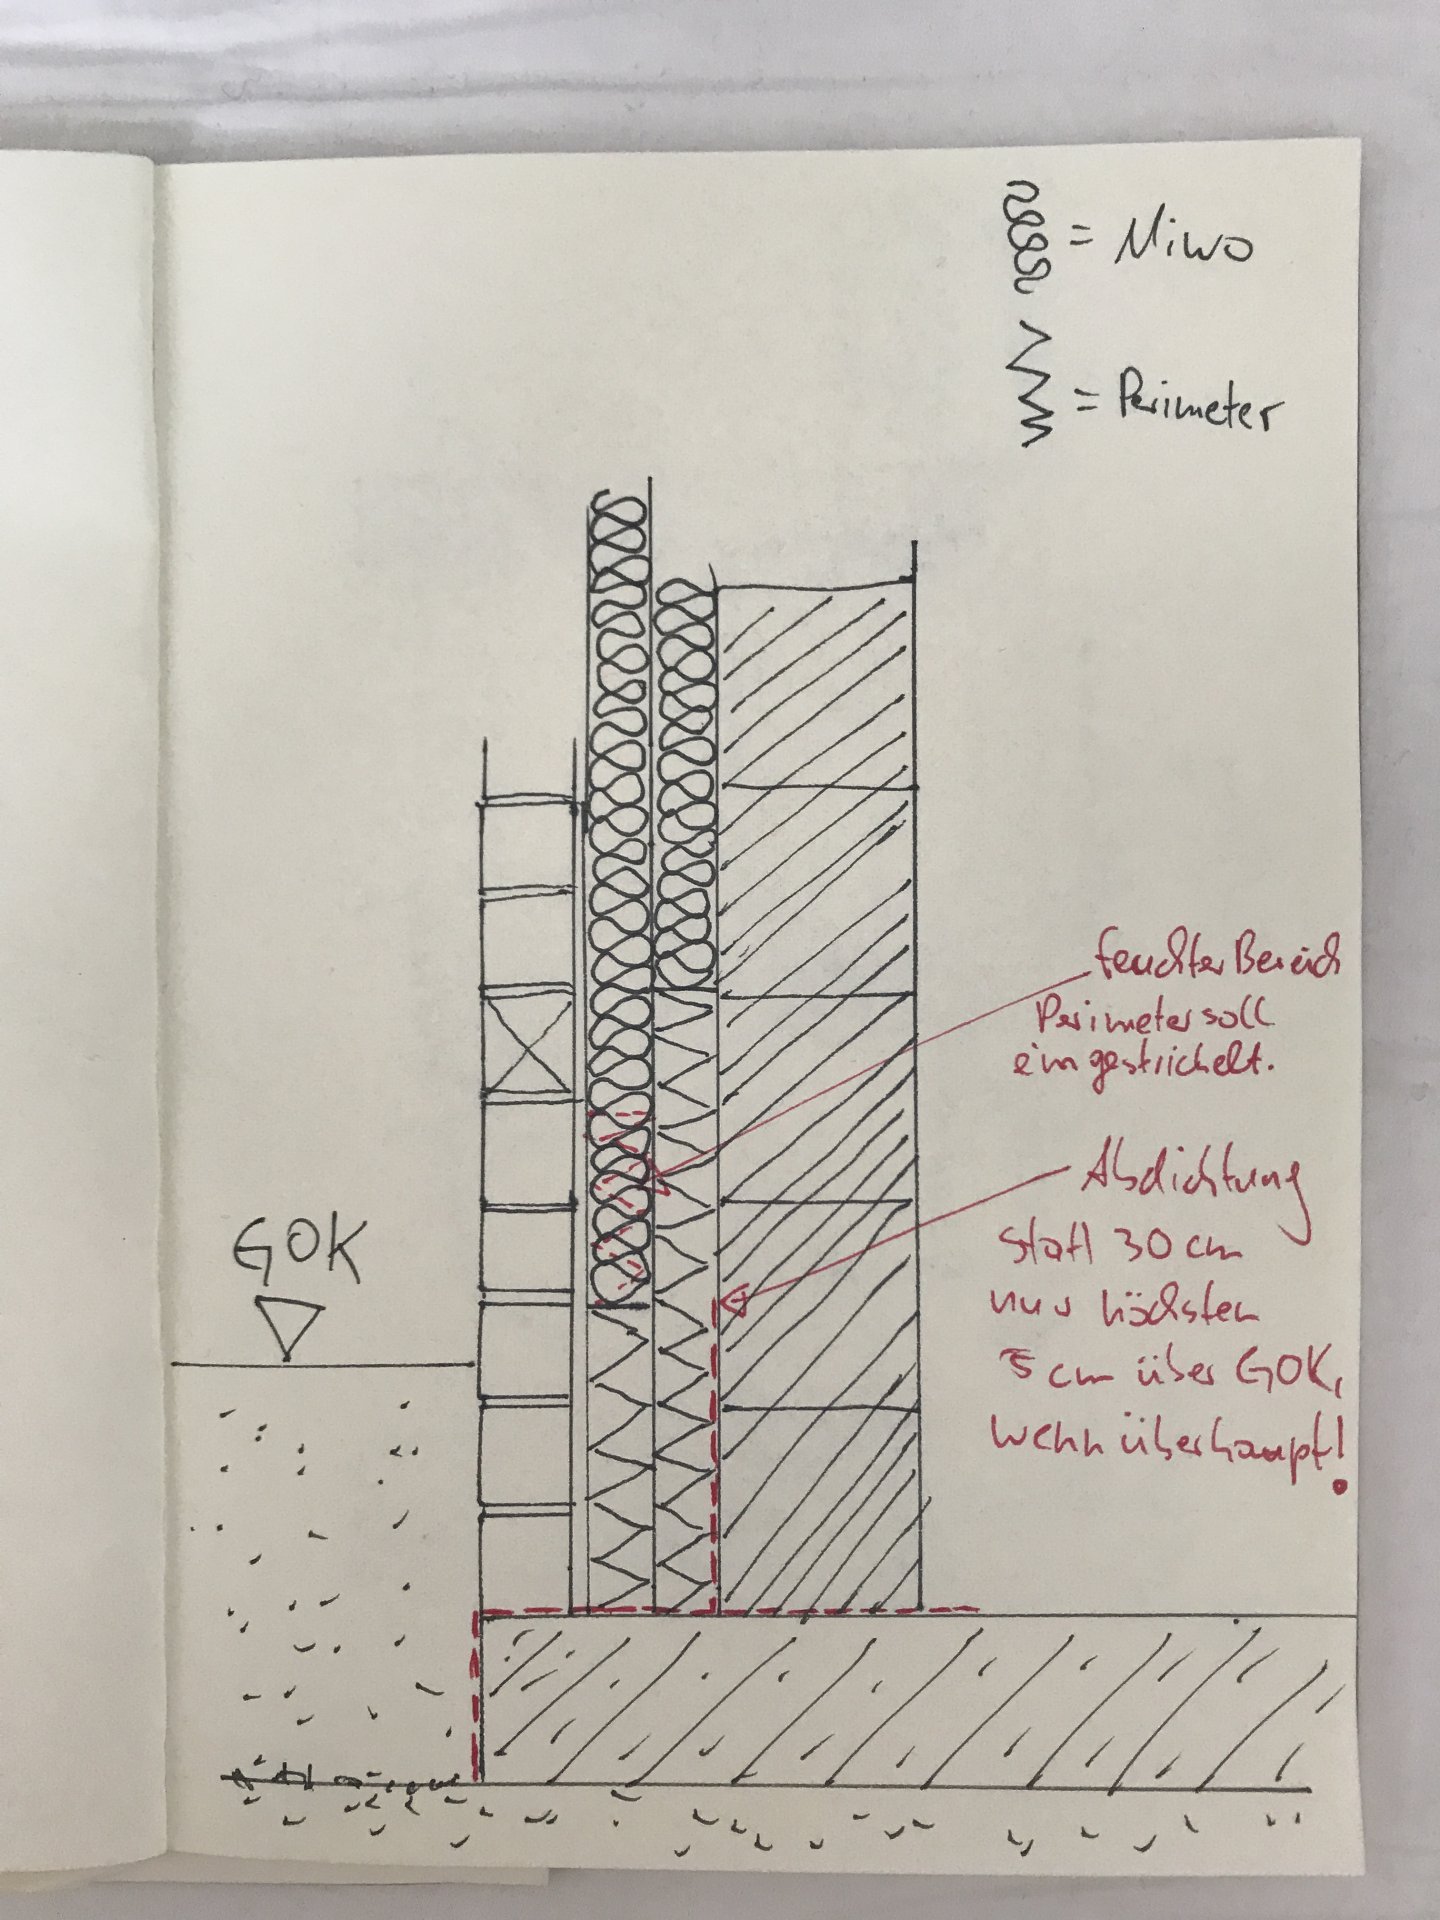 = Miwo
= Perimeter
feuchter Bereich
Perimeter soll
eingestrichelt.
Abdichtung
statt 30 cm
nur höchsten
5 cm über GOK,
wenn überhaupt!
GOK